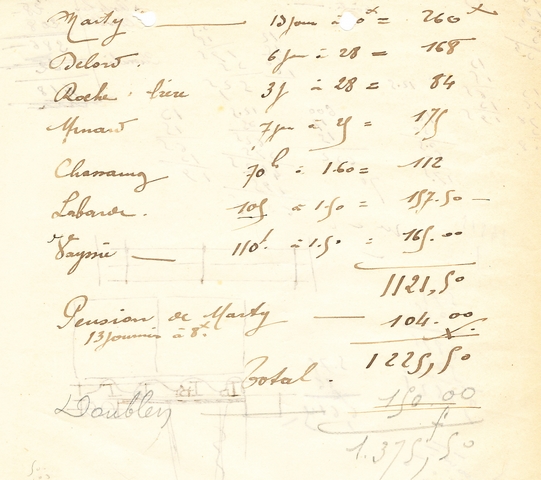 Marty — 13 jours à 20 = 260
Delord. 6 jrs à 28 = 168
Roche frère 3 j à 28 = 84
Menard 7 jrs à 25 = 175
Chassaing 70 h à 1.60 = 112
Labarde. 105 à 1.50 = 157.50 —
Vayssié — 110 h. à 1.50 = 165.00
1121,50
Pension de Marty — 104.00
13 journées à 8.
Total. 1225,50
Doubley 150 00
1.375,50